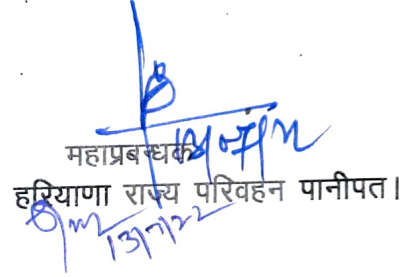 महाप्रबन्धक
हरियाणा राज्य परिवहन पानीपत।
13/7/22